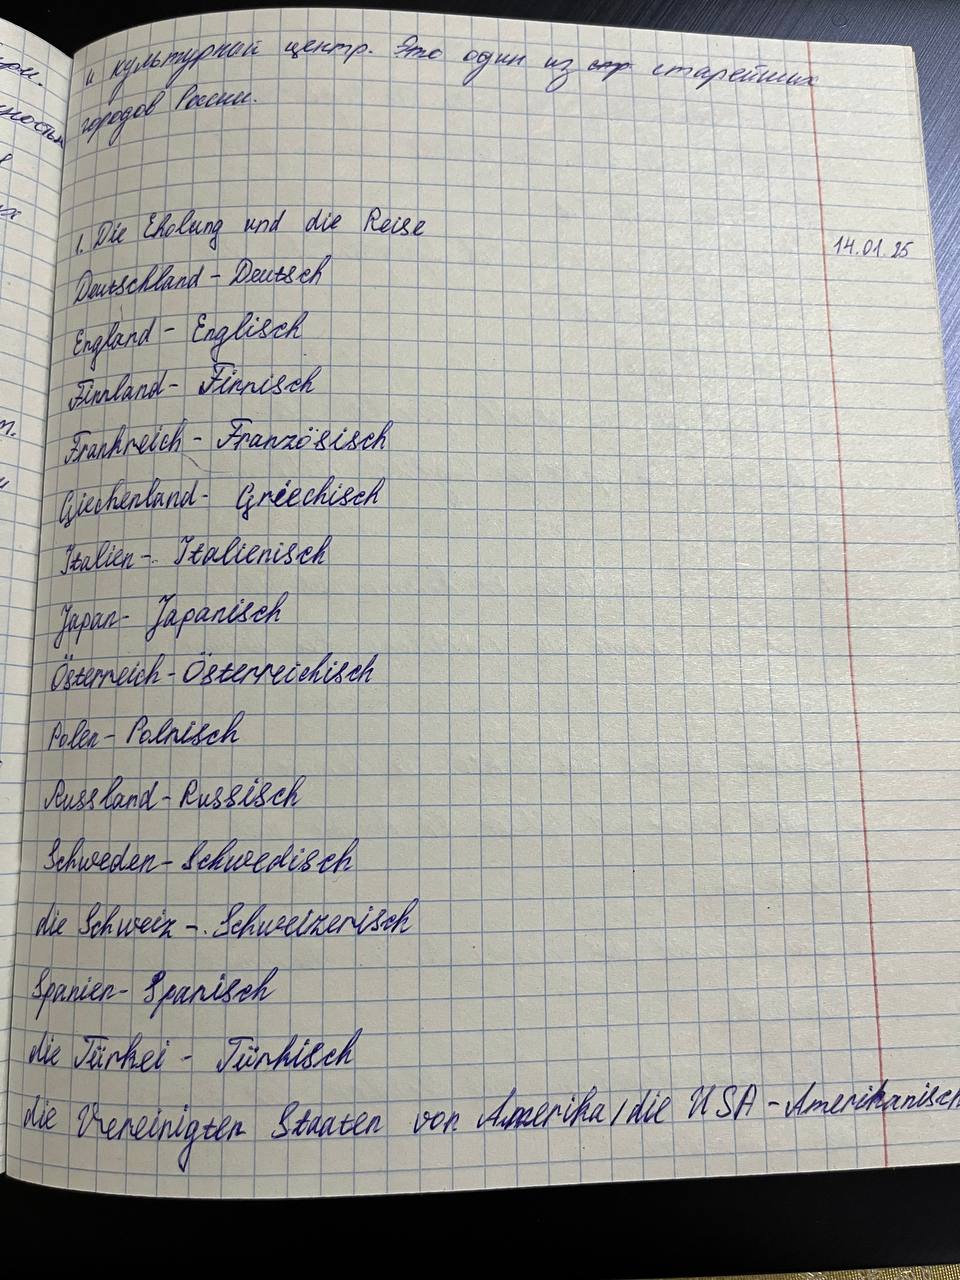 и культурный центр. Это один из стр старейших
городов России.
1. Die Eholung und die Reise
14.01.25
Deutschland - Deutsch
England - Englisch
Finnland - Finnisch
Frankreich - Französisch
Giechenland - Griechisch
Italien - Italienisch
Japan - Japanisch
Österreich - Österreichisch
Polen - Polnisch
Russland - Russisch
Schweden - Schwedisch
die Schweiz - Schweizerisch
Spanien - Spanisch
die Türkei - Türkisch
die Vereinigten Staaten von Amerika / die USA - Amerikanisch